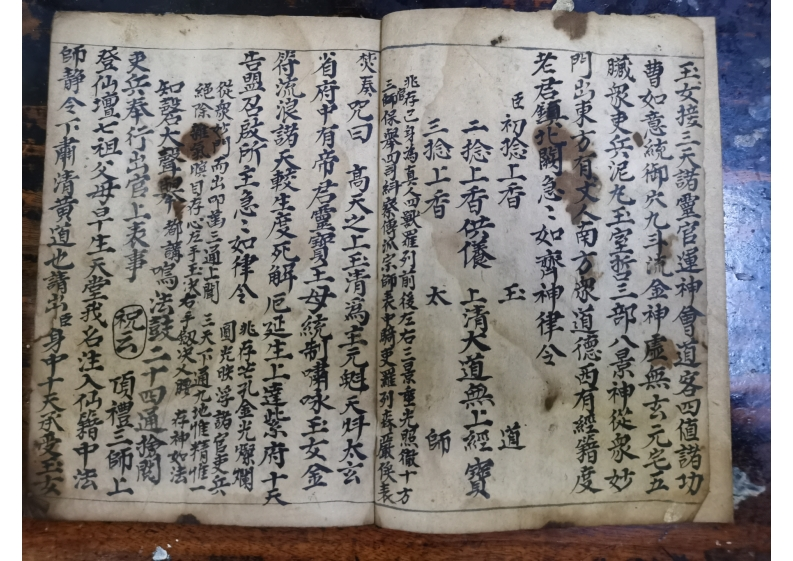 玉女控三天諸靈官運神會道客四值諸功
曹如意統御穴九斗流金神虛無玄元宅五
臟眾吏兵泥九玉室哲三部八景神從眾妙
門出東方有丈人南方眾道德西有經籍度
老君鎮北闕急〻如齊神律令
臣 初捻上香 玉 道
二捻上香供養 上清大道無上經寶
三捻上香 太 師
兆存己身為真人四獸羅列前後左右三景重光照徹十方
三師保舉四司糾察傳派宗師表中騎吏羅列森嚴後表
焚奏咒曰 高天之上玉清為主元魁天斗太玄
省府中有帝君靈寶王母統制嘯咏玉女金
符流浪諸天較生度死解厄延生上達紫府十天
告盟召啟所主急〻如律令 兆存芒孔金光燦爛
圓光映浮諸官吏兵
從眾妙門而出叩齒三通上閞 三天下通九地惟精惟一
絕除雜氣瞑目存心左手玉决右手劔决义腰 存神如法
知磬大聲舉 都講鳴法鼓二十四通捨閞
吏兵奉行出官上表事 祝云 頂禮三師上
登仙壇七祖父母早生天堂我名注入仙籍中法
師靜令下肅清黃道也請出臣身中十天承受玉女